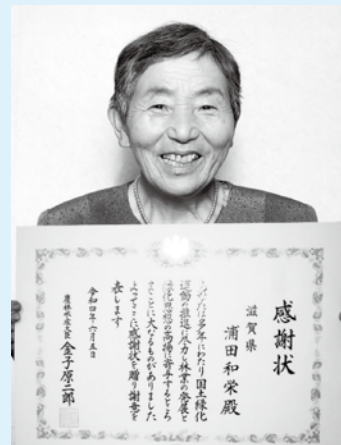 感謝状
滋賀県
浦田和栄殿
あなたは多年にわたり国土緑化
運動の推進に尽力し林業の発展と
緑化思想の高揚に寄与するところ
まことに大なるものがありました
よってここに感謝状を贈り謝意を
表します
令和四年六月五日
農林水産大臣 金子原二郎